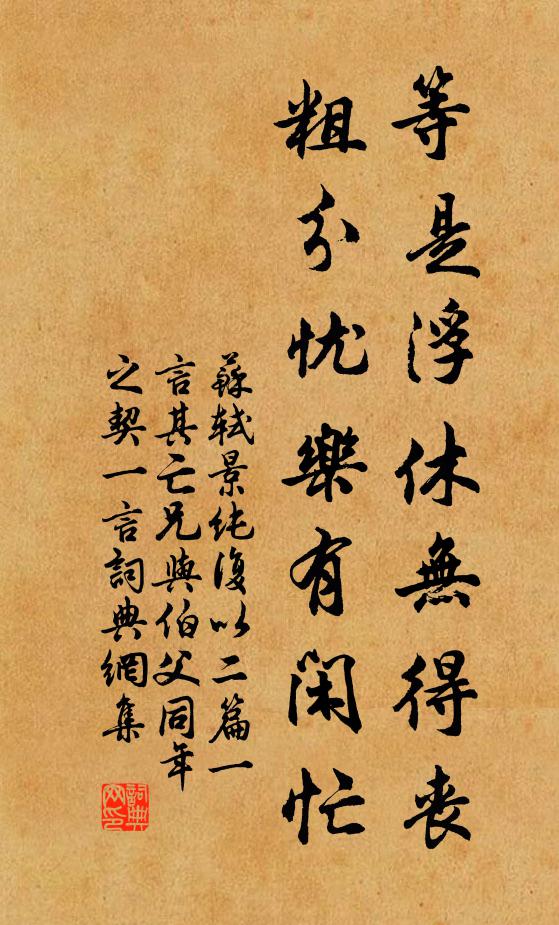 等是浮休無得喪
粗分忧樂有閑忙
蘇軾景純復以二篇一
言其亡兄與伯父同年
之契一言詞典網集
詞典
网印